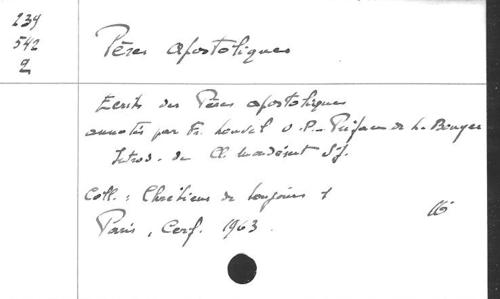 239
542
2
Pères apostoliques
Ecrits des Pères apostoliques
annotés par Fr. Louvel O.P. - Préface de L. Bouyer
Introd. de Cl. Mondésert S.J.
Coll. : Chrétiens de toujours 1
Paris, Cerf. 1963.